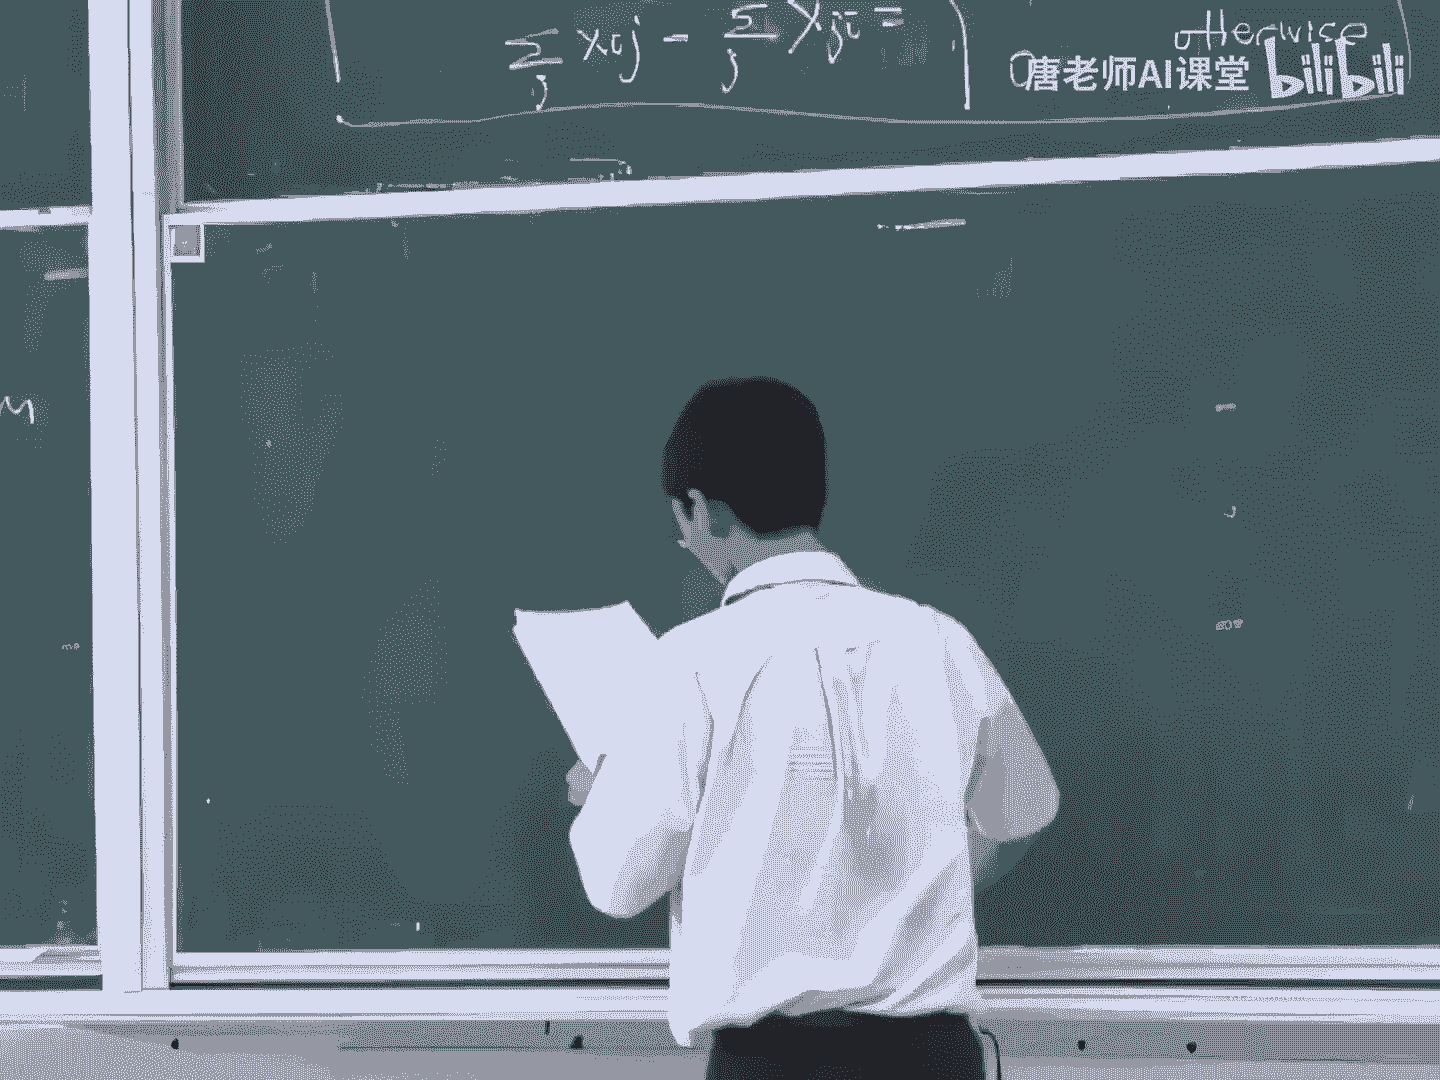 ∑ xij - ∑ xji =
j j
otherwise
0
唐老师AI课堂 bilibili
M